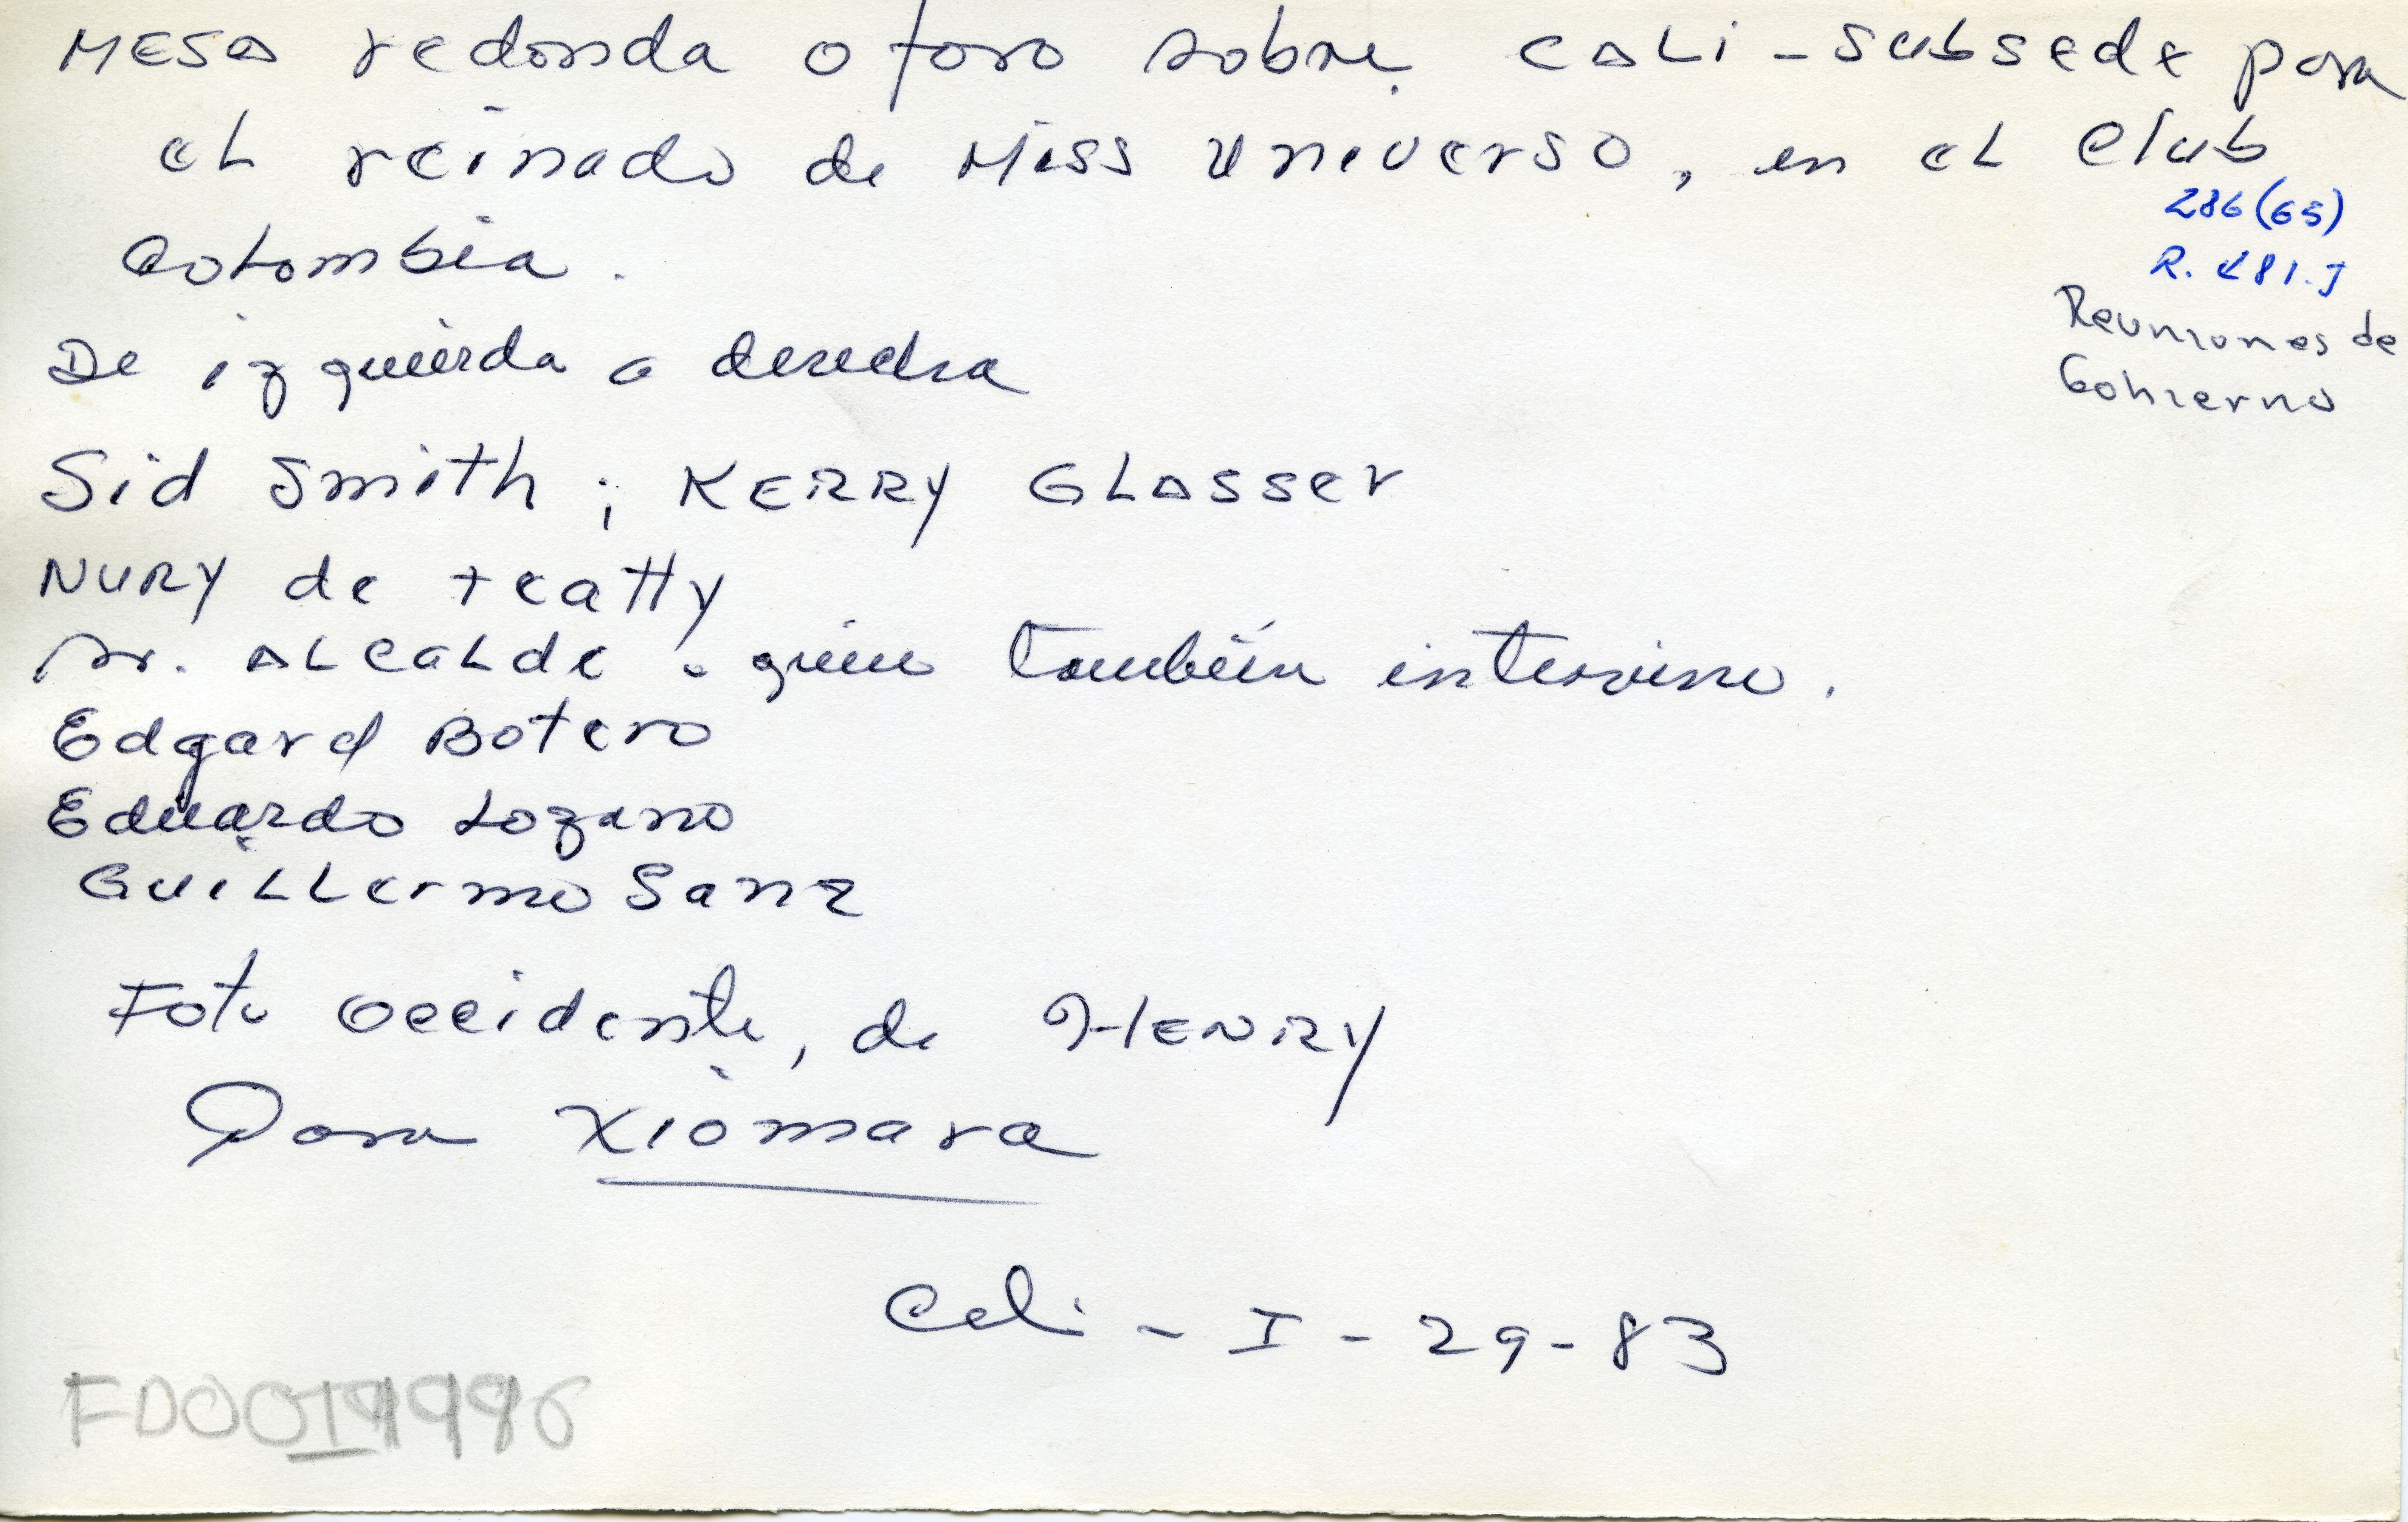 MESA redonda o foro sobre CALi - subsede para
el reinado de Miss Universo, en el Club
286(65)
Colombia.
R. 481.J
Reuniones de
Gobierno
De izquierda a derecha
Sid Smith ; KERRY GLASSer
NURY de teatty
Sr. ALcaLde. quien también intervino.
Edgard Botero
Eduardo Lozano
GuiLLermo Sanz
Foto Occidente, de HENRY
Para Xiomara
Cali - I - 29-83